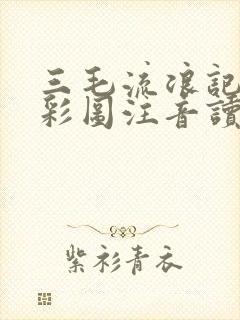 三毛流浪記
彩圖注音讀
紫衫青衣